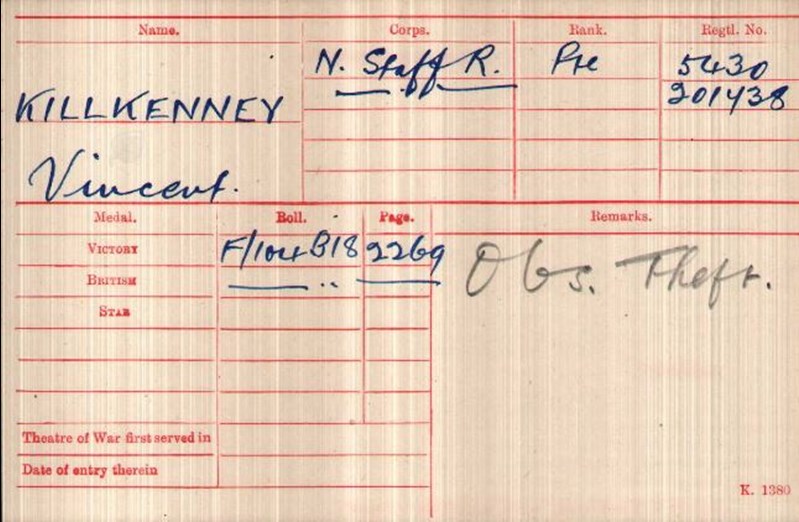 Name. Corps. Rank. Regtl. No.
N. Staff R. Pte 5430
KILLKENNEY 201438
Vincent.
Medal. Roll. Page. Remarks.
VICTORY F/104 B18 2269 Obs. Theft.
BRITISH —— " ——
STAR
Theatre of War first served in
Date of entry therein
K. 1380